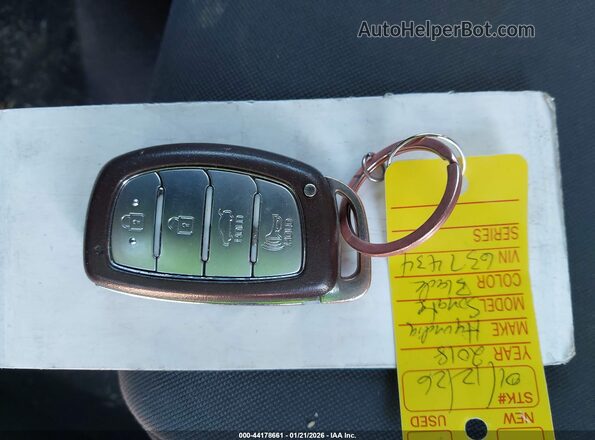 AutoHelperBot.com
NEW USED
STK# 01/12/26
YEAR 2018
MAKE Hyundia
MODEL Sonata
COLOR Black
VIN 637434
SERIES
HOLD
000-44178661 - 01/21/2026 - IAA Inc.